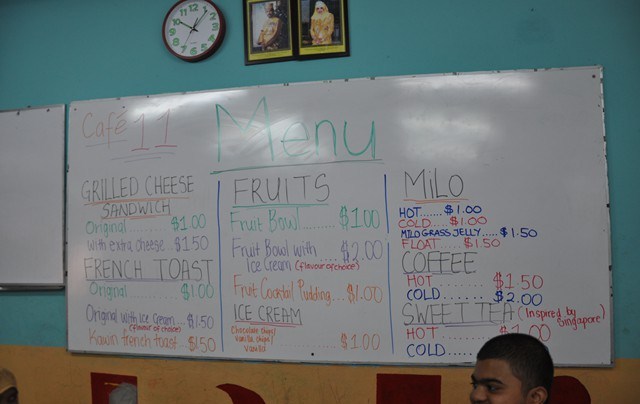 Café 11
Menu
GRILLED CHEESE
SANDWICH
Original.......... $1.00
with extra cheese.. $1.50
FRENCH TOAST
Original.......... $1.00
Original with Ice Cream.... $1.50
(flavour of choice)
Kawin french toast.. $1.50
FRUITS
Fruit Bowl......... $1.00
Fruit Bowl with ..... $2.00
Ice Cream (flavour of choice)
Fruit Cocktail Pudding... $1.00
ICE CREAM
Chocolate chips/
Vanilla chips/
Vanilla $1.00
MiLO
HOT....... $1.00
COLD...... $1.00
MILO GRASS JELLY..... $1.50
FLOAT...... $1.50
COFFEE
HOT......... $1.50
COLD........ $2.00
SWEET TEA (Inspired by
Singapore)
HOT......... $1.00
COLD......